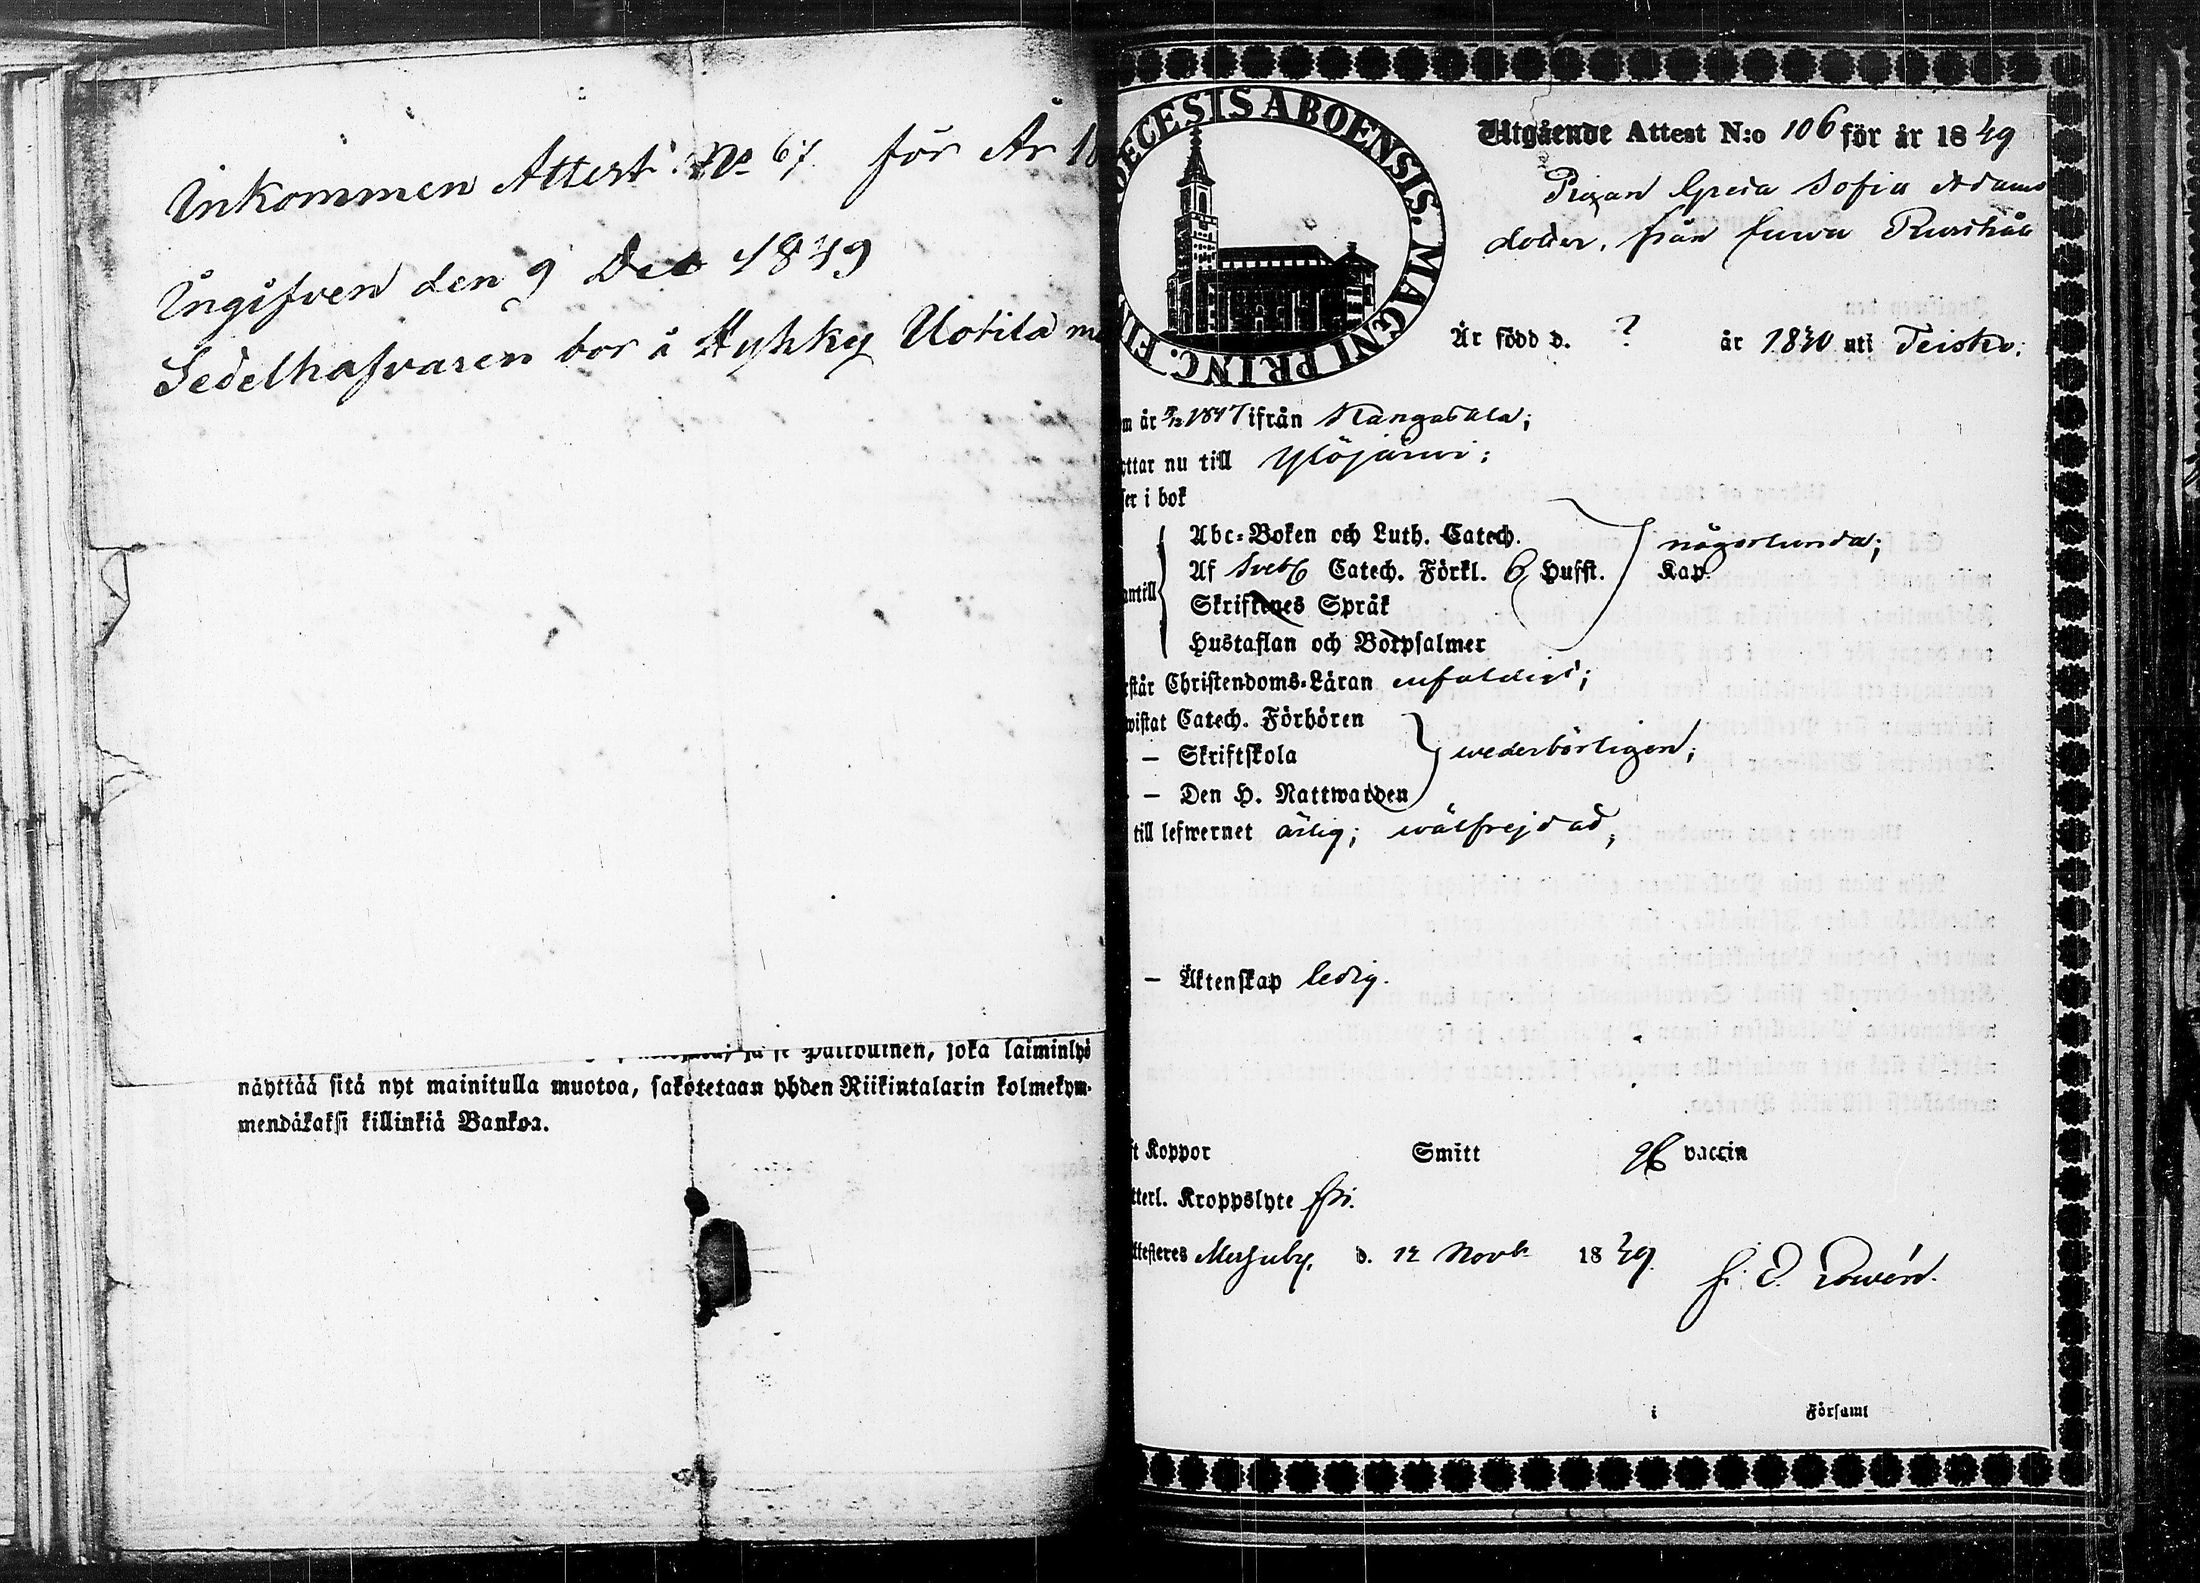 Inkommen Attest No 67 för År 18
Ingifven den 9 Dec 1849
Sedelhafvaren bor å Hyhky Uotila
näyttää sitä nyt mainitulla muotoa, sakotetaan yhden Riikintalarin kolmekym-
mendäkaksi killinkiä Bankoa.
ECESIS ABOENSIS. MAGNI PRINC. FI
Utgående Attest N:o 106 för år 1849
Pigan Greta Sofia Adams
dotter, från
Är född d. ? år 1830 uti Teisko;
m år 1847 ifrån Kangasala;
ttar nu till Ylöjärvi;
ser i bok
Abc-Boken och Luth. Catech. någorlunda;
Af Sveb Catech. Förkl. 6 Hufst. Kap.
antill
Skriftenes Språk
Hustaflan och Botpsalmer
rstår Christendoms-Läran enfaldigt;
wistat Catech. Förhören
– Skriftskola wederbörligen;
– Den H. Nattwarden
till lefwernet ärlig; wälfrejdad;
– Äktenskap ledig.
ft Koppor Smitt vaccin
tterl. Kroppslyte fri.
ttesteres Messuby, d. 12 Novb 1849.
i Församl